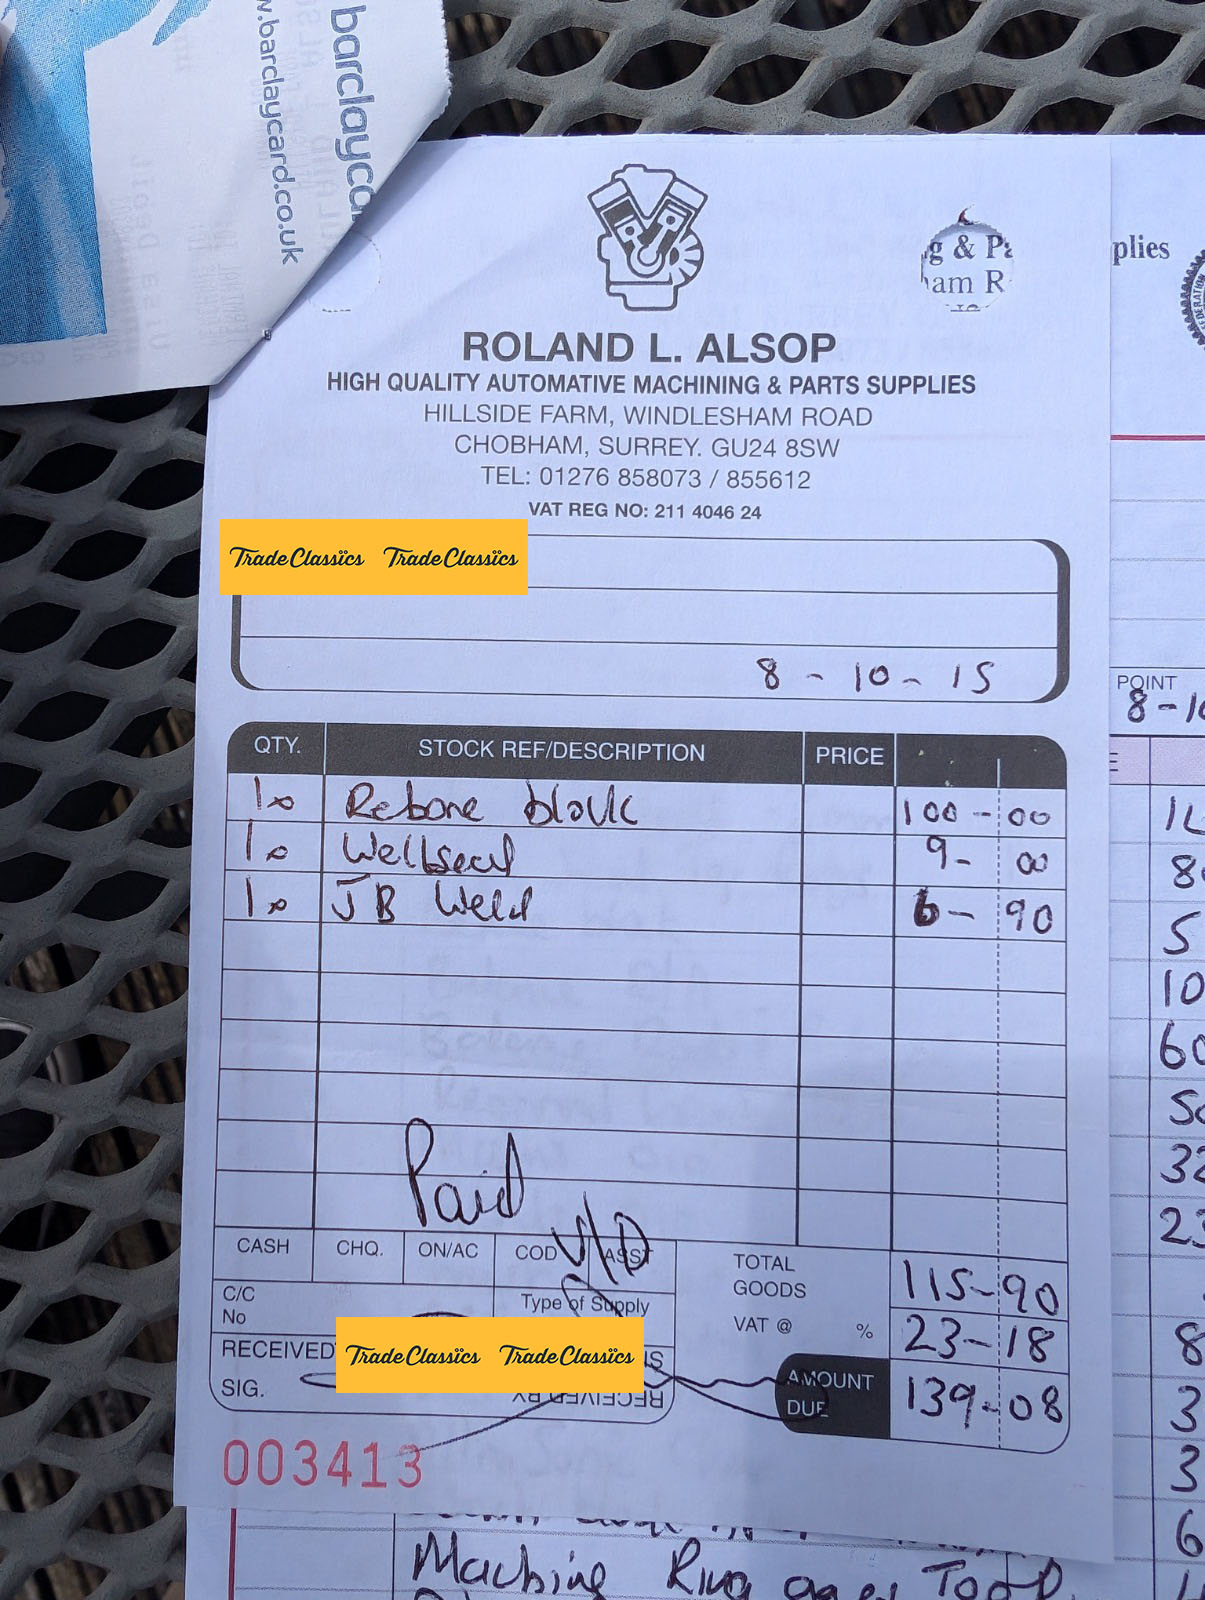 barclayca
w.barclaycard.co.uk
g & Pa
plies
am R
ROLAND L. ALSOP
HIGH QUALITY AUTOMATIVE MACHINING & PARTS SUPPLIES
HILLSIDE FARM, WINDLESHAM ROAD
CHOBHAM, SURREY. GU24 8SW
TEL: 01276 858073 / 855612
VAT REG NO: 211 4046 24
TradeClassics TradeClassics
8 - 10 - 15
POINT
8-10
QTY. STOCK REF/DESCRIPTION PRICE
1x Rebore block 100-00
1x Wellseal 9-00
1x JB Weld 6-90
5
10
60
50
32
23
Paid
V/D
CASH CHQ. ON/AC COD ASST
TOTAL GOODS 115-90
C/C No
Type of Supply
VAT @ % 23-18
RECEIVED
TradeClassics TradeClassics
SIG.
RECEIVED BY
AMOUNT DUE 139-08
003413
8
3
3
6
Machine Ring